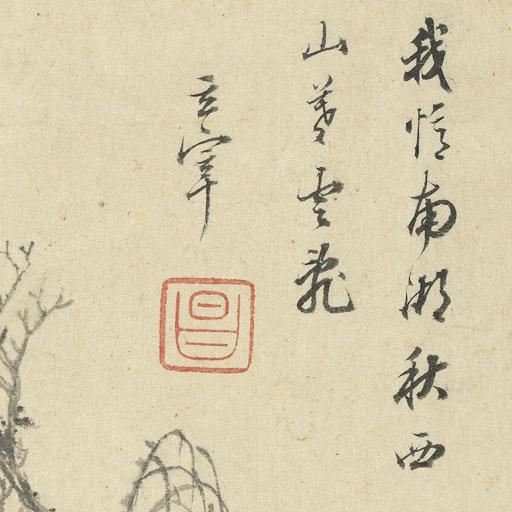 我憶南湖秋西
山夢雲飛
玄宰
昌